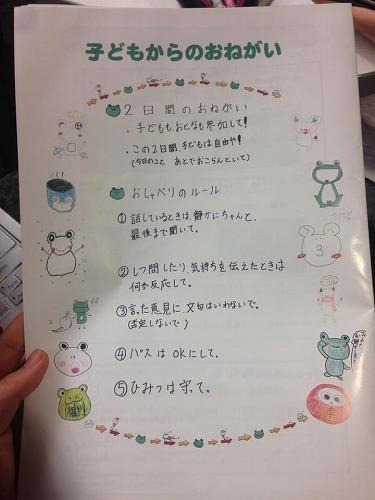 子どもからのおねがい
2日間のおねがい
・子どもも、おとなも参加して!
・この2日間、子どもは自由や!
(今日のこと あとでおこらんといて)
おしゃべりのルール
①話しているときは、静かにちゃんと、
最後まで聞いて。
②しつ問したり、気持ちを伝えたときは
何か反応して。
③言った意見に、文句はいわないで。
(否定しないで)
④パスはOKにして。
⑤ひみつは守って。
3